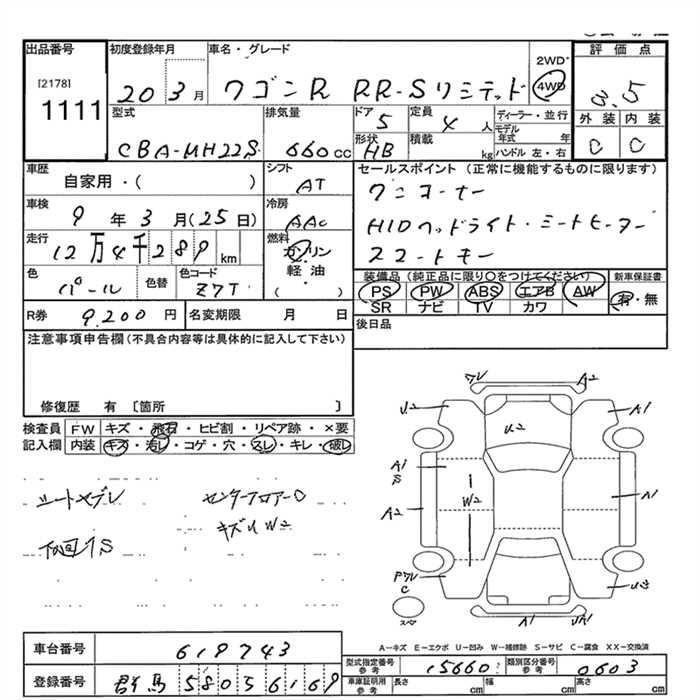 出品番号 初度登録年月 車名・グレード 評価点
[2178]
1111
20 3月 ワゴンR RR-Sリミテッド 2WD・4WD 3.5
型式 排気量 ドア 定員 ディーラー・並行 外装 内装
CBA-MH22S 660cc 5 4人 モデル年式 年 C C
形状 積載 ハンドル 左・右
HB kg
車歴 シフト セールスポイント(正常に機能するものに限ります)
自家用・( ) AT ワンオーナー
車検 冷房
9年3月(25日) AAC HIDヘッドライト・シートヒーター
走行 燃料
12万4千289km ガソリン スマートキー
軽油
( )
色 色替 色コード 装備品(純正品に限り○をつけてください) 新車保証書
パール Z7T PS PW ABS エアB AW 有・無
SR ナビ TV カワ
R券 9,200円 名変期限 月 日 後日品
注意事項申告欄(不具合内容等は具体的に記入して下さい)
修復歴 有 [箇所 ]
検査員 FW キズ・飛石・ヒビ割・リペア跡・×要
記入欄 内装 キズ・汚レ・コゲ・穴・スレ・キレ・破レ
センターフロアーC
キズU W2
下回りS
ワレ A2
U2 U2 A1
A1
S
W2 A1
A2
C
スペア A1
A-キズ E-エクボ U-凹み W-補修跡 S-サビ C-腐食 XX-交換済
車台番号 618743
型式指定番号 参考 15660 類別区分番号 参考 0603
登録番号 群馬 580 ち 6169
車庫証明用 参考 長さ cm 幅 cm 高さ cm